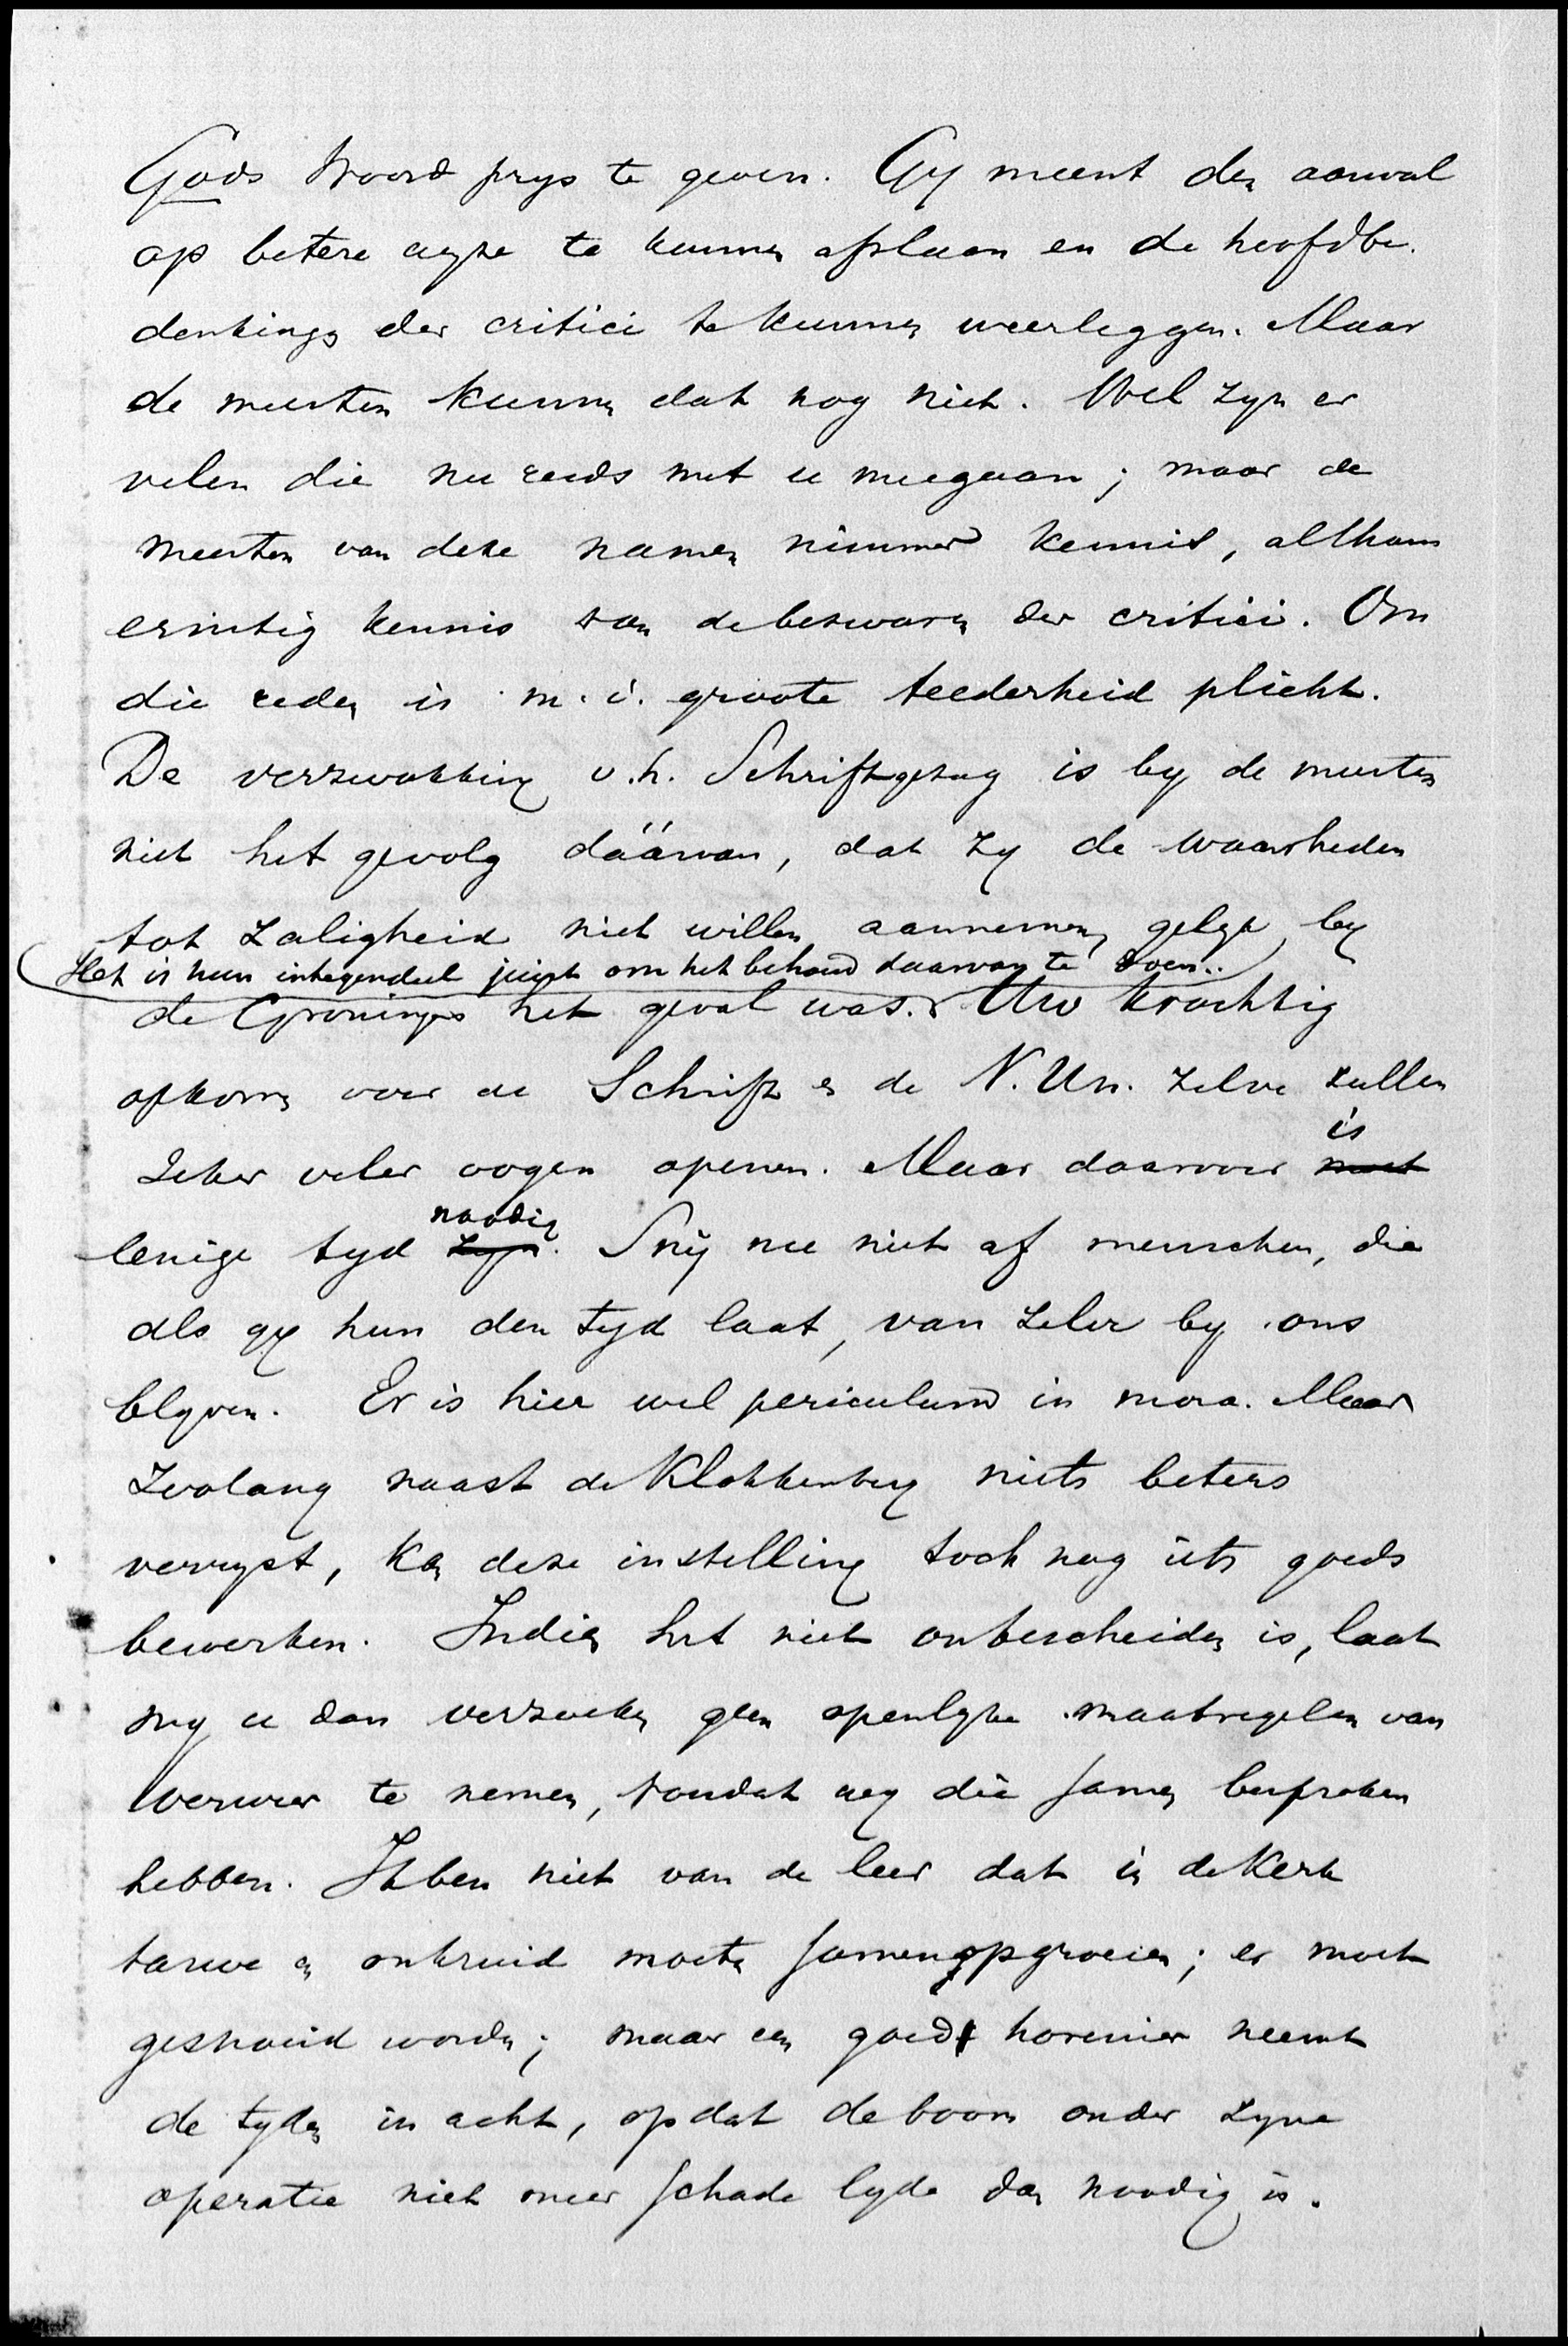 Gods Woord prys te geven. Gy meent den aanval
op betere wyze te kunnen afslaan en de hoofdbe-
denkingen der critici te kunnen weerleggen. Maar
de meesten kunnen dat nog niet. Wel zyn er
velen die nu reeds met u meegaan; maar de
meesten van deze namen nimmer kennis, althans
ernstig kennis van de bezwaren der critici. Om
die reden is m.i. groote teederheid plicht.
De verzwakking v.h. Schriftgezag is by de meesten
niet het gevolg dáárvan, dat zy de waarheden
tot zaligheid niet willen aannemen, gelyk by
(Het is hun integendeel juist om het behoud daarvan te doen..)
de Groningers het geval was. Uw krachtig
opkomen voor de Schrift en de N. Un. zelve zullen
zeker veler oogen openen. Maar daarvoor moet is
eenige tyd zyn noodig. Sny nu niet af menschen, die
als gy hun den tyd laat, van zelve by ons
blyven. Er is hier wel periculum in mora. Maar
Zoolang naast de Klokkenberg niets beters
verryst, kan deze instelling toch nog iets goeds
bewerken. Indien het niet onbescheiden is, laat
my u dan verzoeken geen openlyke maatregelen van
verweer te nemen, voordat wy die samen besproken
hebben. Ik ben niet van de leer dat in de Kerk
tarwe en onkruid moeten samen opgroeien; er moet
gesnoeid worden; maar een goed hovenier neemt
de tyden in acht, opdat de boom onder zyne
operatie niet meer schade lyde dan noodig is.